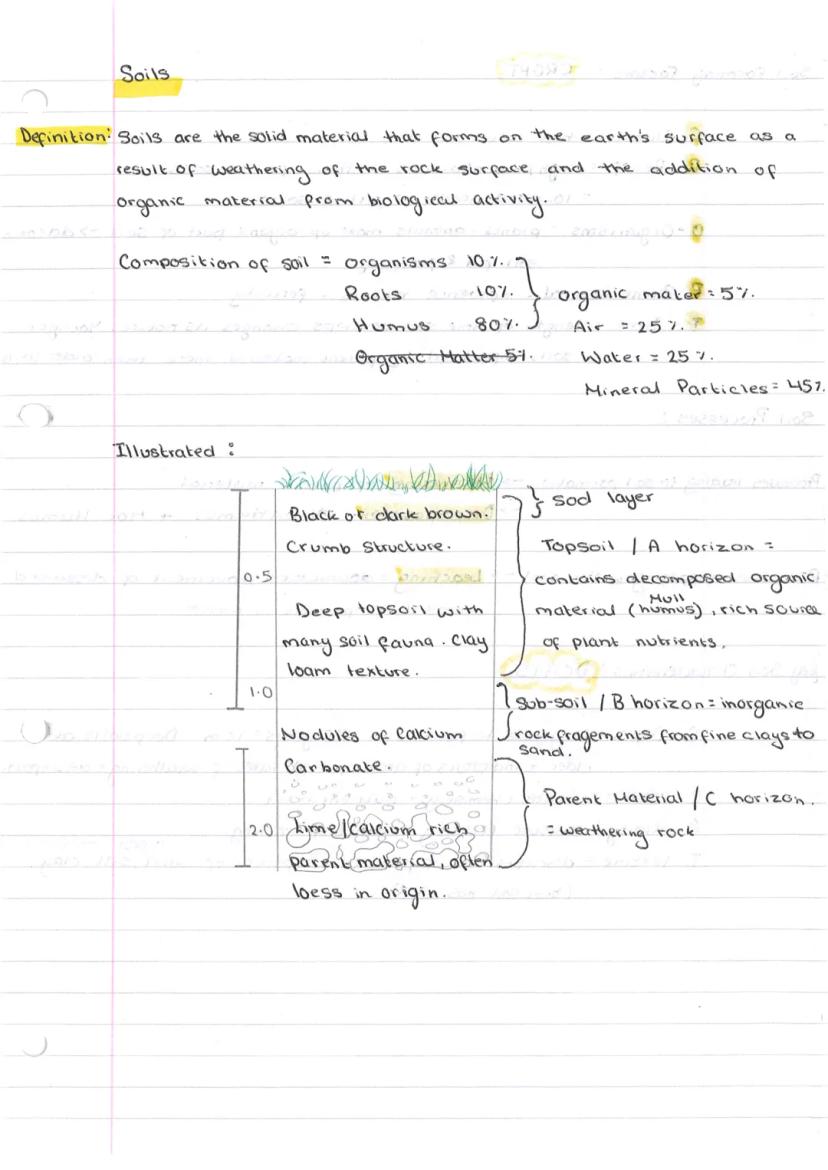 Soils
Definition: Soils are the solid material that forms on the earth's surface as a
result of weathering of the rock surface and the addition of
organic material from biological activity.
Composition of soil = organisms 10%.
Roots 10%. organic mater = 5%.
Humus 80%. Air = 25%.
Organic Matter 5%. Water = 25%.
Mineral Particles = 45%.
Illustrated :
sod layer
Black or dark brown.
Crumb Structure.
Topsoil / A horizon =
0.5
contains decomposed organic
Mull
material (humus), rich source
of plant nutrients.
Deep topsoil with
many soil fauna. Clay
loam texture.
1.0
Sub-soil / B horizon = inorganic
rock fragements from fine clays to
sand.
Nodules of Calcium
Carbonate.
Parent Material / C horizon.
= weathering rock
2.0
Lime/calcium rich
parent material, often
loess in origin.